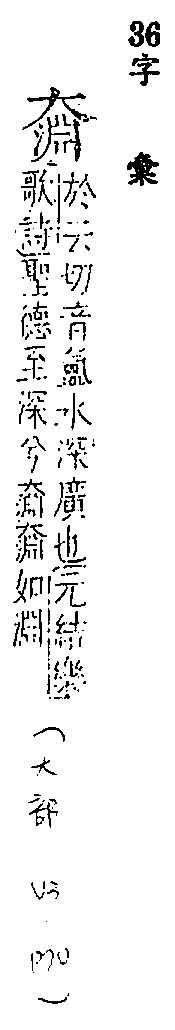 36 字彙
奫
於云切音氳水深廣也元結樂
歌詩聖德至深兮奫奫如淵
(大部